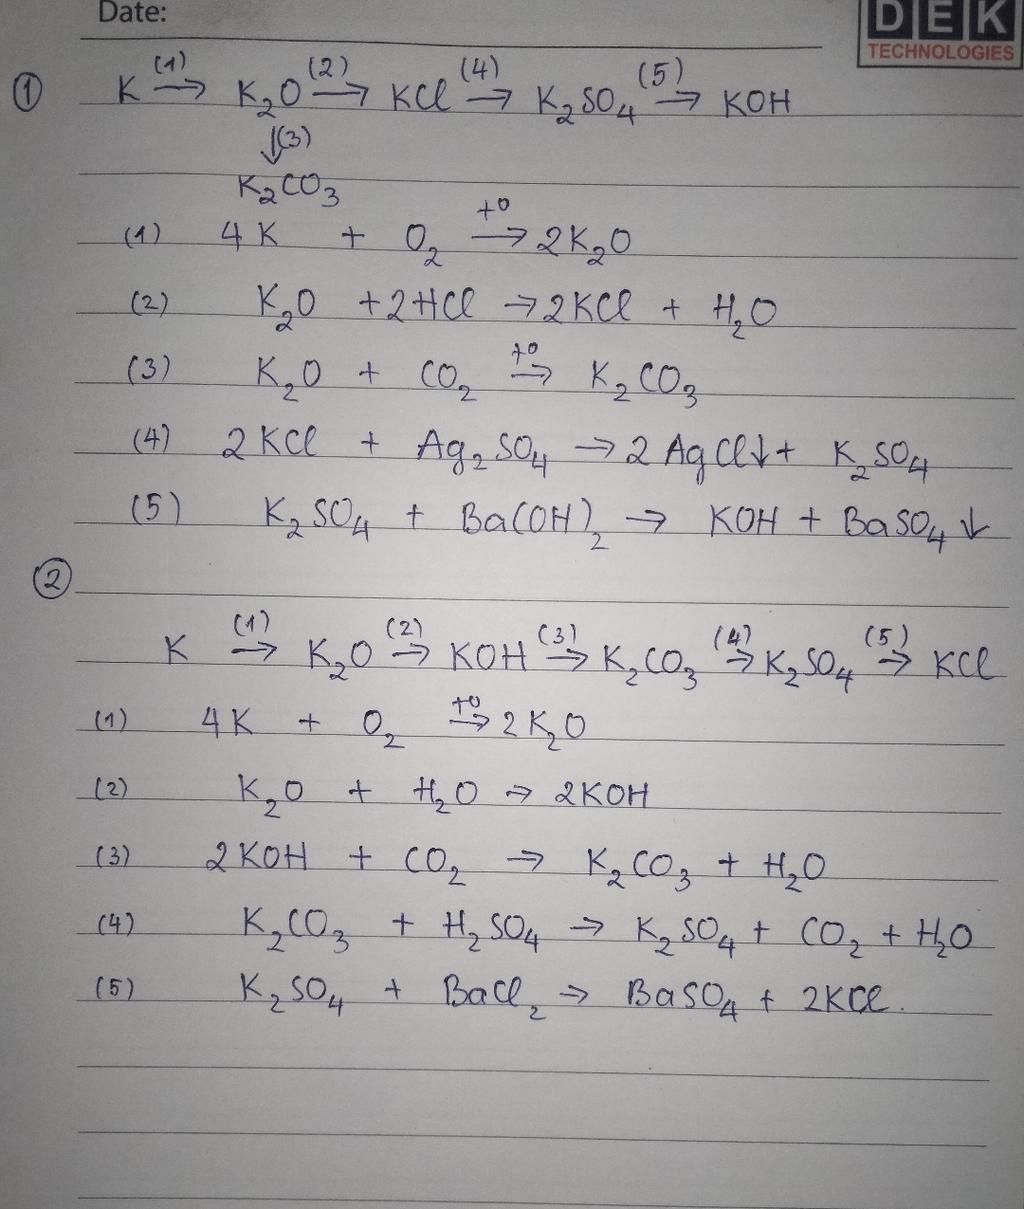 Date:
DEK
TECHNOLOGIES
① K (1)→ K₂O (2)→ KCl (4)→ K₂SO₄ (5)→ KOH
↓(3)
K₂CO₃
(1) 4K + O₂ t°→ 2K₂O
(2) K₂O + 2HCl → 2KCl + H₂O
(3) K₂O + CO₂ t°→ K₂CO₃
(4) 2KCl + Ag₂SO₄ → 2AgCl↓ + K₂SO₄
(5) K₂SO₄ + Ba(OH)₂ → KOH + BaSO₄↓
②
K (1)→ K₂O (2)→ KOH (3)→ K₂CO₃ (4)→ K₂SO₄ (5)→ KCl
(1) 4K + O₂ t°→ 2K₂O
(2) K₂O + H₂O → 2KOH
(3) 2KOH + CO₂ → K₂CO₃ + H₂O
(4) K₂CO₃ + H₂SO₄ → K₂SO₄ + CO₂ + H₂O
(5) K₂SO₄ + BaCl₂ → BaSO₄ + 2KCl.